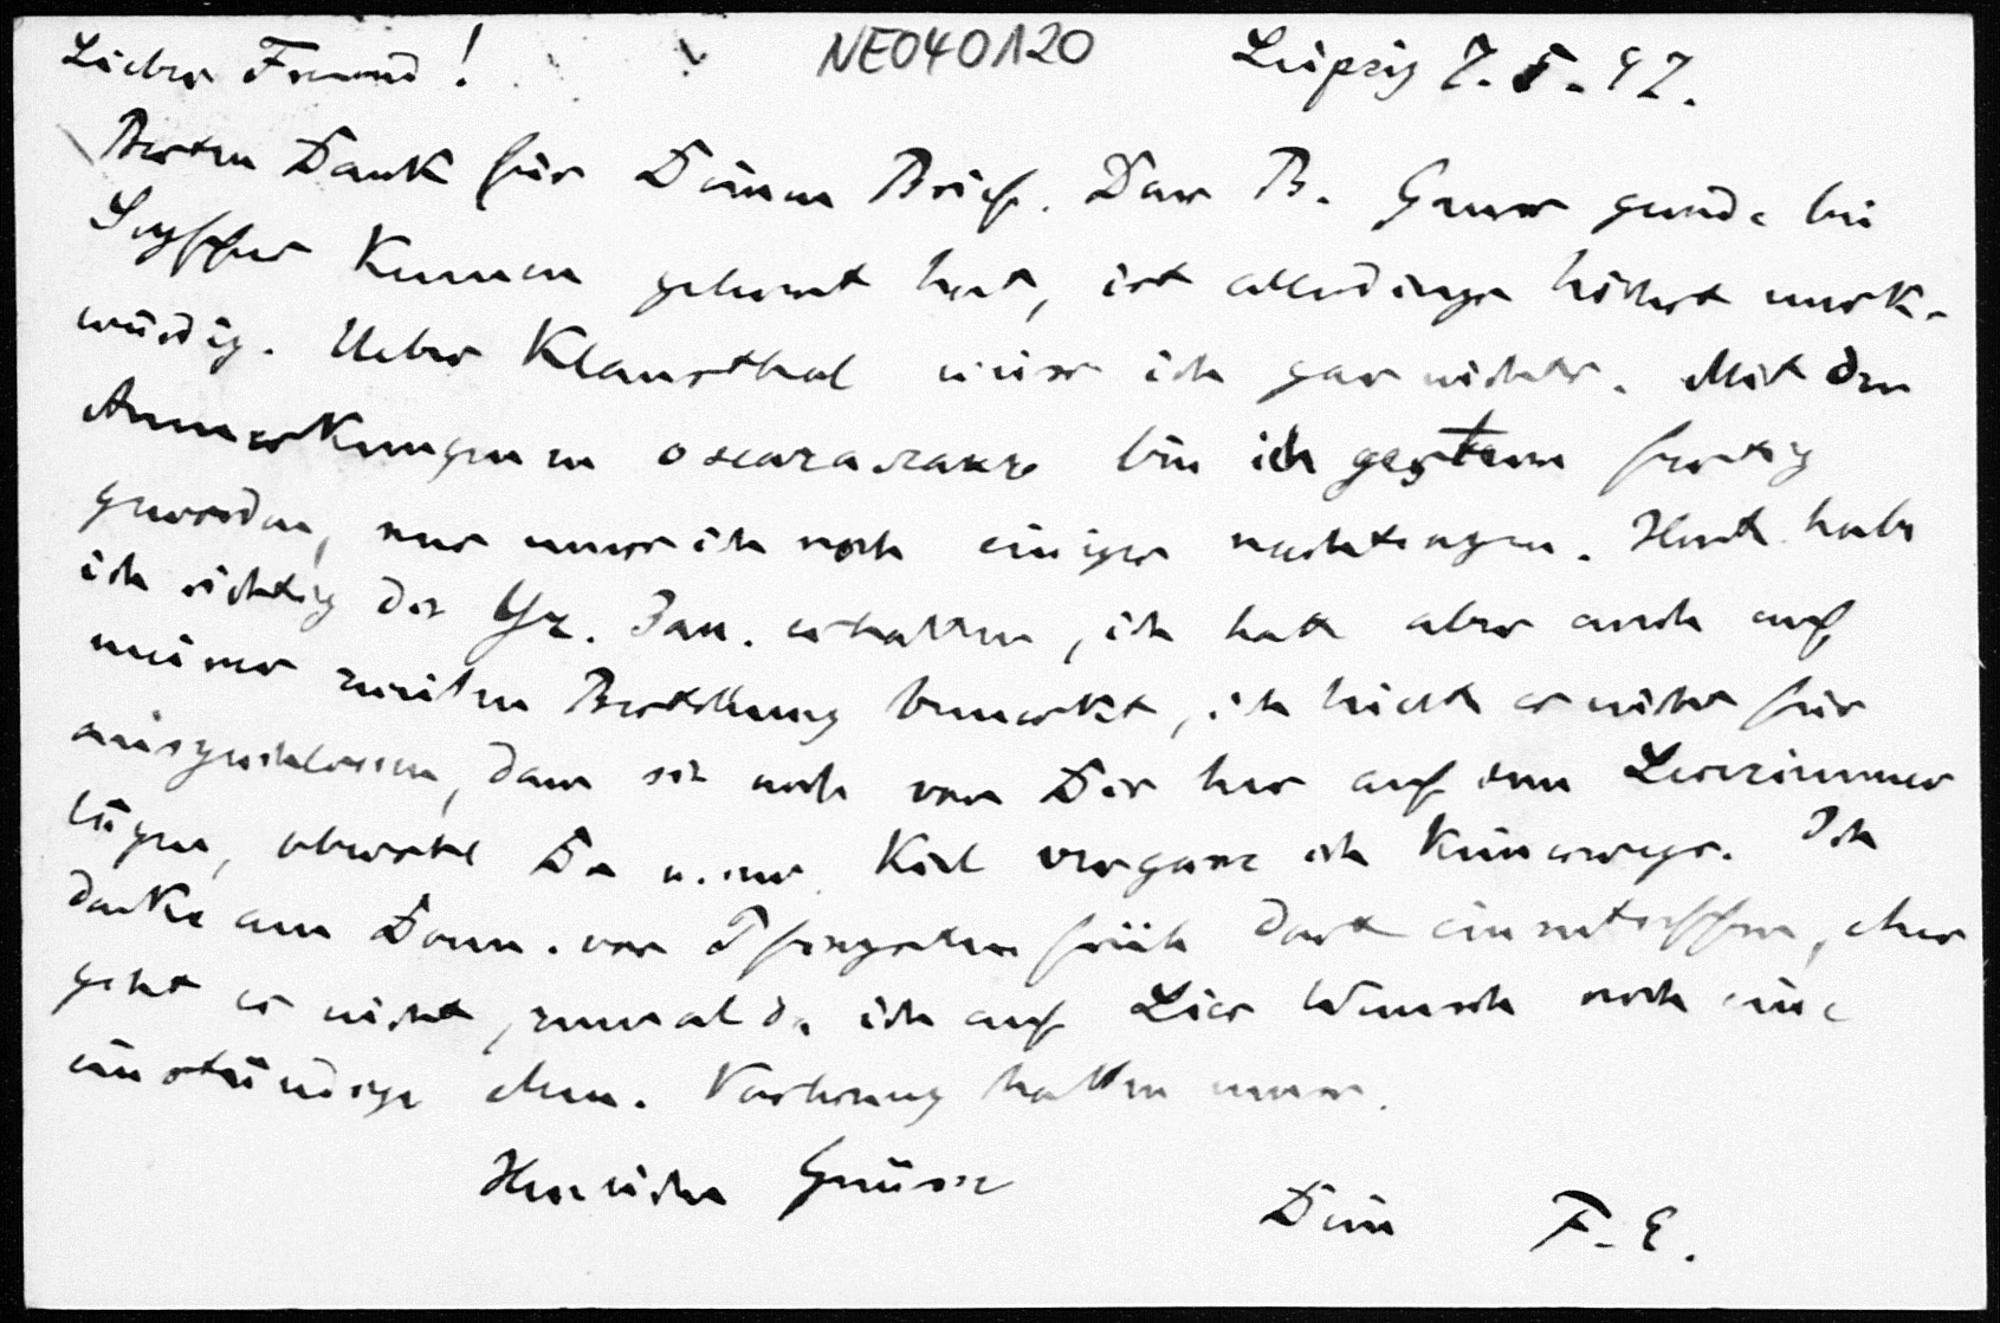 Lieber Freund! NE040120 Leipzig 7.5.97.
Besten Dank für Deinen Brief. Dass B. Gauss gerade bei
Seyffer kennen gelernt hat, ist allerdings höchst merk-
würdig. Ueber Klausthal weiss ich gar nichts. Mit den
Anmerkungen bin ich gestern fertig
geworden, nur muss ich noch einiges nachtragen. Heute habe
ich richtig die erhalten, ich hatte aber auch auf
meiner zweiten Bestellung bemerkt, ich hielte es nicht für
ausgeschlossen, dass sie noch von Dir her auf dem Lesezimmer
lägen, obwohl Du Kiel vergasse ich keineswegs. Ich
denke am Donn. vor Pfingsten früh dort einzutreffen, eher
geht es nicht, zumal da ich auf Lies Wunsch noch eine
einstündige Vorlesung halten muss.
Herzliche Grüsse
Dein F. E.